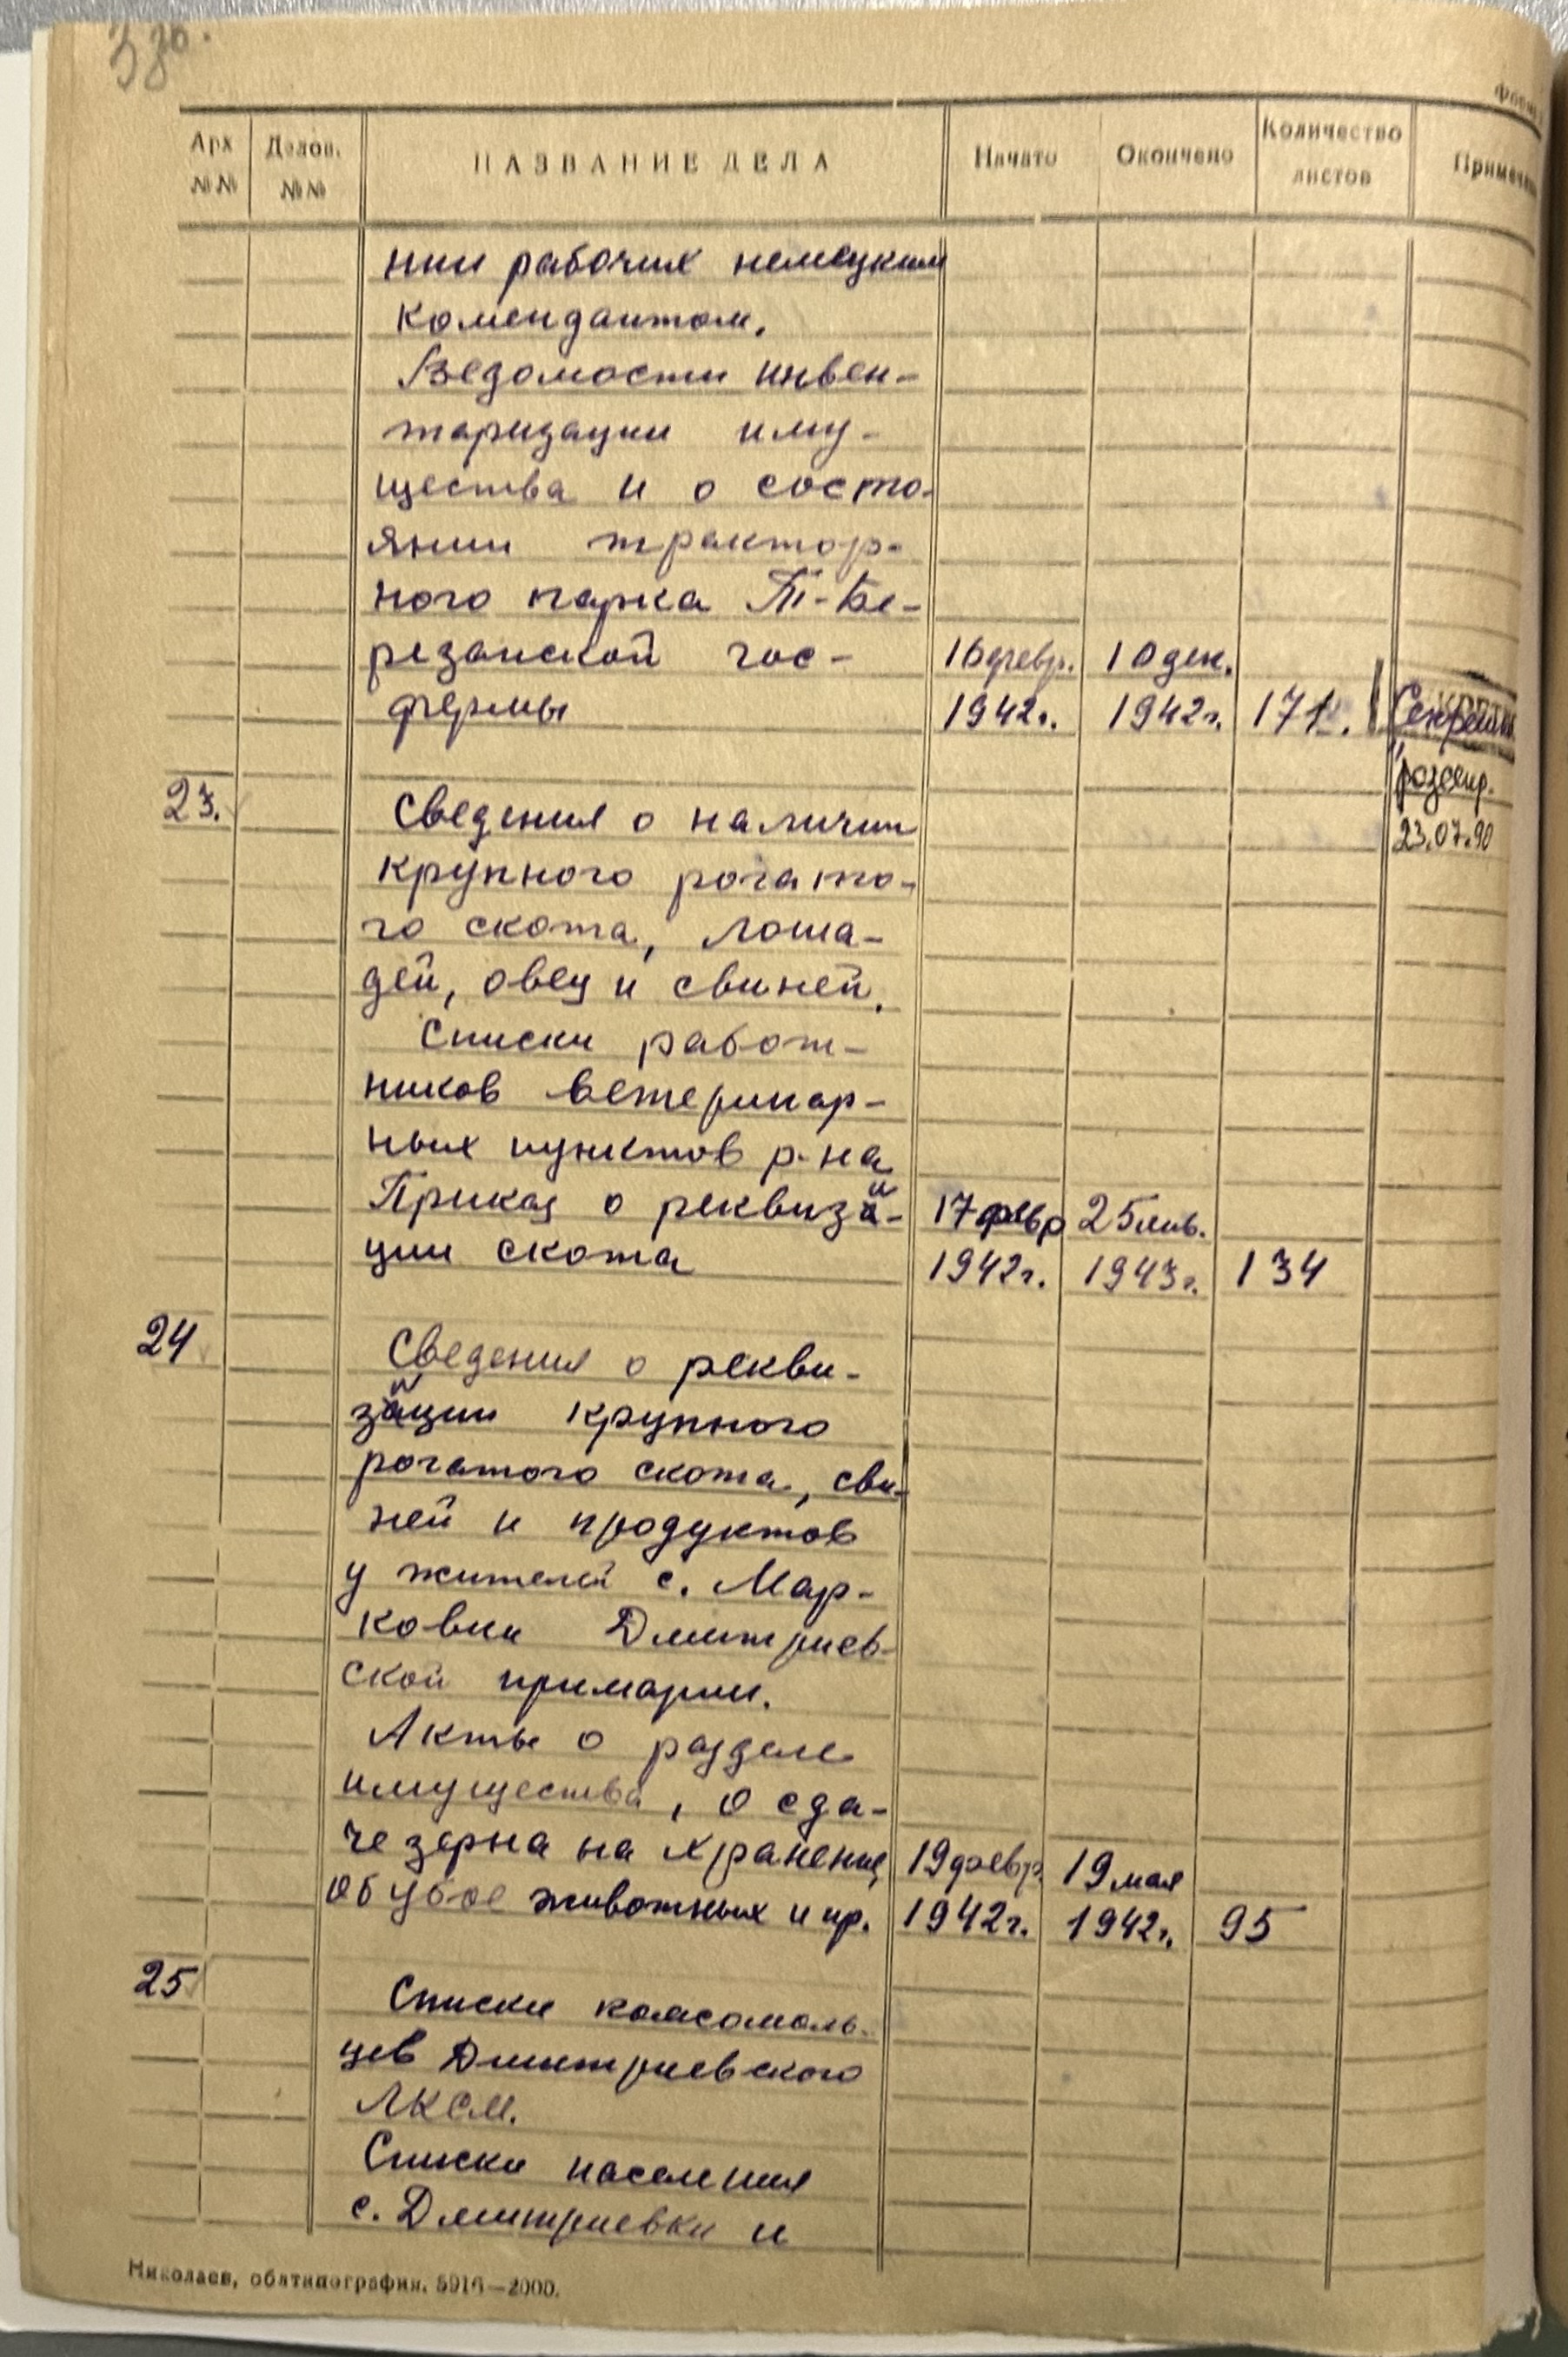 3 об.
Арх №№ Делов. №№ НАЗВАНИЕ ДЕЛА Начато Окончено Количество листов
нии рабочих немецким
комендантом.
Ведомости инвен-
таризации иму-
щества и о состо-
янии трактор-
ного парка Т-Бе-
резанской гос- 16 февр. 10 дек.
фермы 1942г. 1942г. 171. Секретно
рассекр.
23. Сведения о наличии 23.07.90
крупного рогато-
го скота, лоша-
дей, овец и свиней.
Списки работ-
ников ветеринар-
ных пунктов р-на
Приказ о реквизи- 17 февр 25 янв.
ции скота 1942г. 1943г. 134
24 Сведения о рекви-
зиции крупного
рогатого скота, сви-
ней и продуктов
у жителей с. Мар-
ковки Дмитриев-
ской примарии.
Акты о разделе
имущества, о сда-
че зерна на хранение, 19 февр. 19 мая
об убое животных и пр. 1942г. 1942г. 95
25 Списки комсомоль-
цев Дмитриевского
ЛКСМ.
Списки населения
с. Дмитриевки и
Николаев, облтипография. 5916—2000.